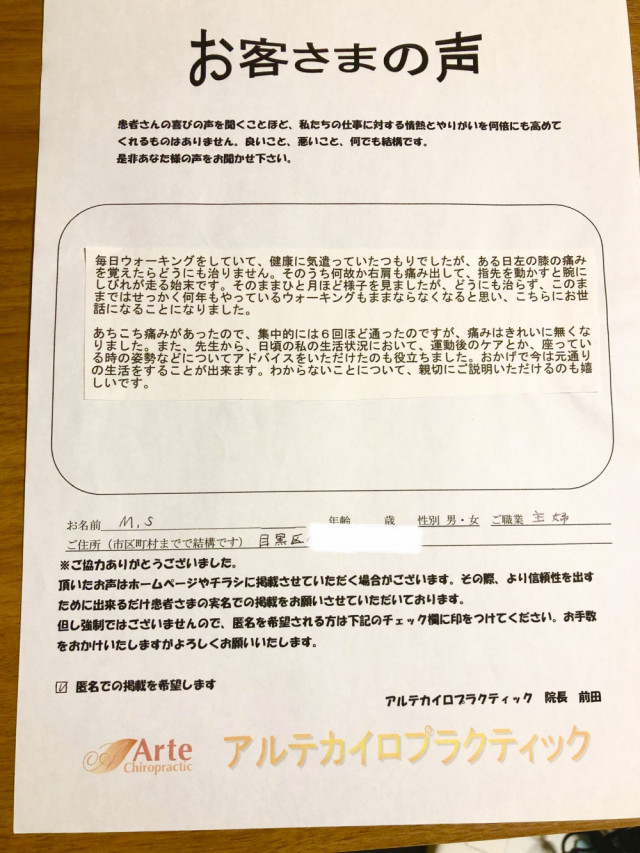 お客さまの声
患者さんの喜びの声を聞くことほど、私たちの仕事に対する情熱とやりがいを何倍にも高めて
くれるものはありません。良いこと、悪いこと、何でも結構です。
是非あなた様の声をお聞かせ下さい。
毎日ウォーキングをしていて、健康に気遣っていたつもりでしたが、ある日左の膝の痛み
を覚えたらどうにも治りません。そのうち何故か右肩も痛み出して、指先を動かすと腕に
しびれが走る始末です。そのままひと月ほど様子を見ましたが、どうにも治らず、このま
まではせっかく何年もやっているウォーキングもままならなくなると思い、こちらにお世
話になることになりました。
あちこち痛みがあったので、集中的には6回ほど通ったのですが、痛みはきれいに無くな
りました。また、先生から、日頃の私の生活状況において、運動後のケアとか、座ってい
る時の姿勢などについてアドバイスをいただけたのも役立ちました。おかげで今は元通り
の生活をすることが出来ます。わからないことについて、親切にご説明いただけるのも嬉
しいです。
お名前 M,S 年齢 歳 性別 男・女 ご職業 主婦
ご住所（市区町村までで結構です） 目黒区
※ご協力ありがとうございました。
頂いたお声はホームページやチラシに掲載させていただく場合がございます。その際、より信頼性を出す
ために出来るだけ患者さまの実名での掲載をお願いさせていただいております。
但し強制ではございませんので、匿名を希望される方は下記のチェック欄に印をつけてください。お手数
をおかけいたしますがよろしくお願いいたします。
☑ 匿名での掲載を希望します
アルテカイロプラクティック 院長 前田
Arte
Chiropractic
アルテカイロプラクティック